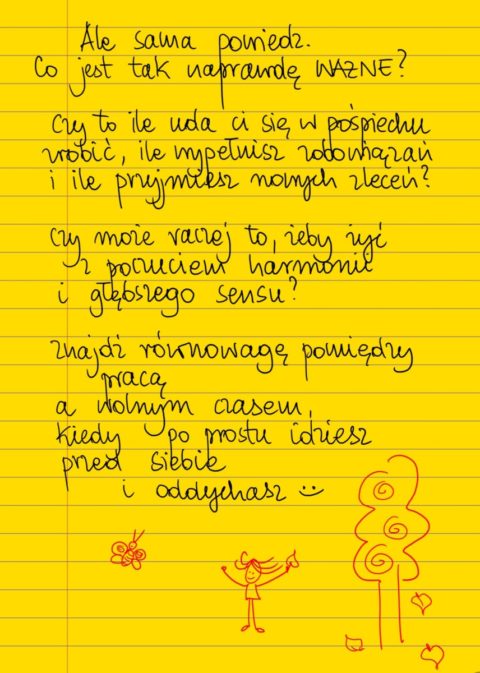 Ale sama powiedz.
Co jest tak naprawdę WAŻNE?
Czy to ile uda ci się w pośpiechu
zrobić, ile wypełnisz zobowiązań
i ile przyjmiesz nowych zleceń?
Czy może raczej to, żeby żyć
z poczuciem harmonii
i głębszego sensu?
Znajdź równowagę pomiędzy
pracą
a wolnym czasem,
kiedy po prostu idziesz
przed siebie
i oddychasz :)